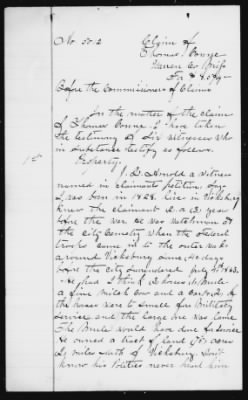 No. 5012
Claim of
Thomas
Warren Co Miss
For $
Before the Commissioners of Claims
In the matter of the claim
of Thomas I have taken
the testimony of Six witnesses who
in substance testify as follows.
Property.
1st J. D. Arnold a witness
named in claimant petition Says
I was born in 1828. live in Vicksburg
Knew the claimant a year
before the war. He was watchman at
the City Cemetry when the federal
troops came in to the outer works
around Vicksburg Some 40 days
before the city Surrendered July 4th 1863.
He had I think 2 horses 1 Mule
a fine Milch Cow and a Cart. 1 of
the horses were to Small for Military
Service and the large one was lame
The Mule would have done for Service
He owned a tract of land 45 acres
2½ miles South of Vicksburg. Don't
know his Politics never heard him